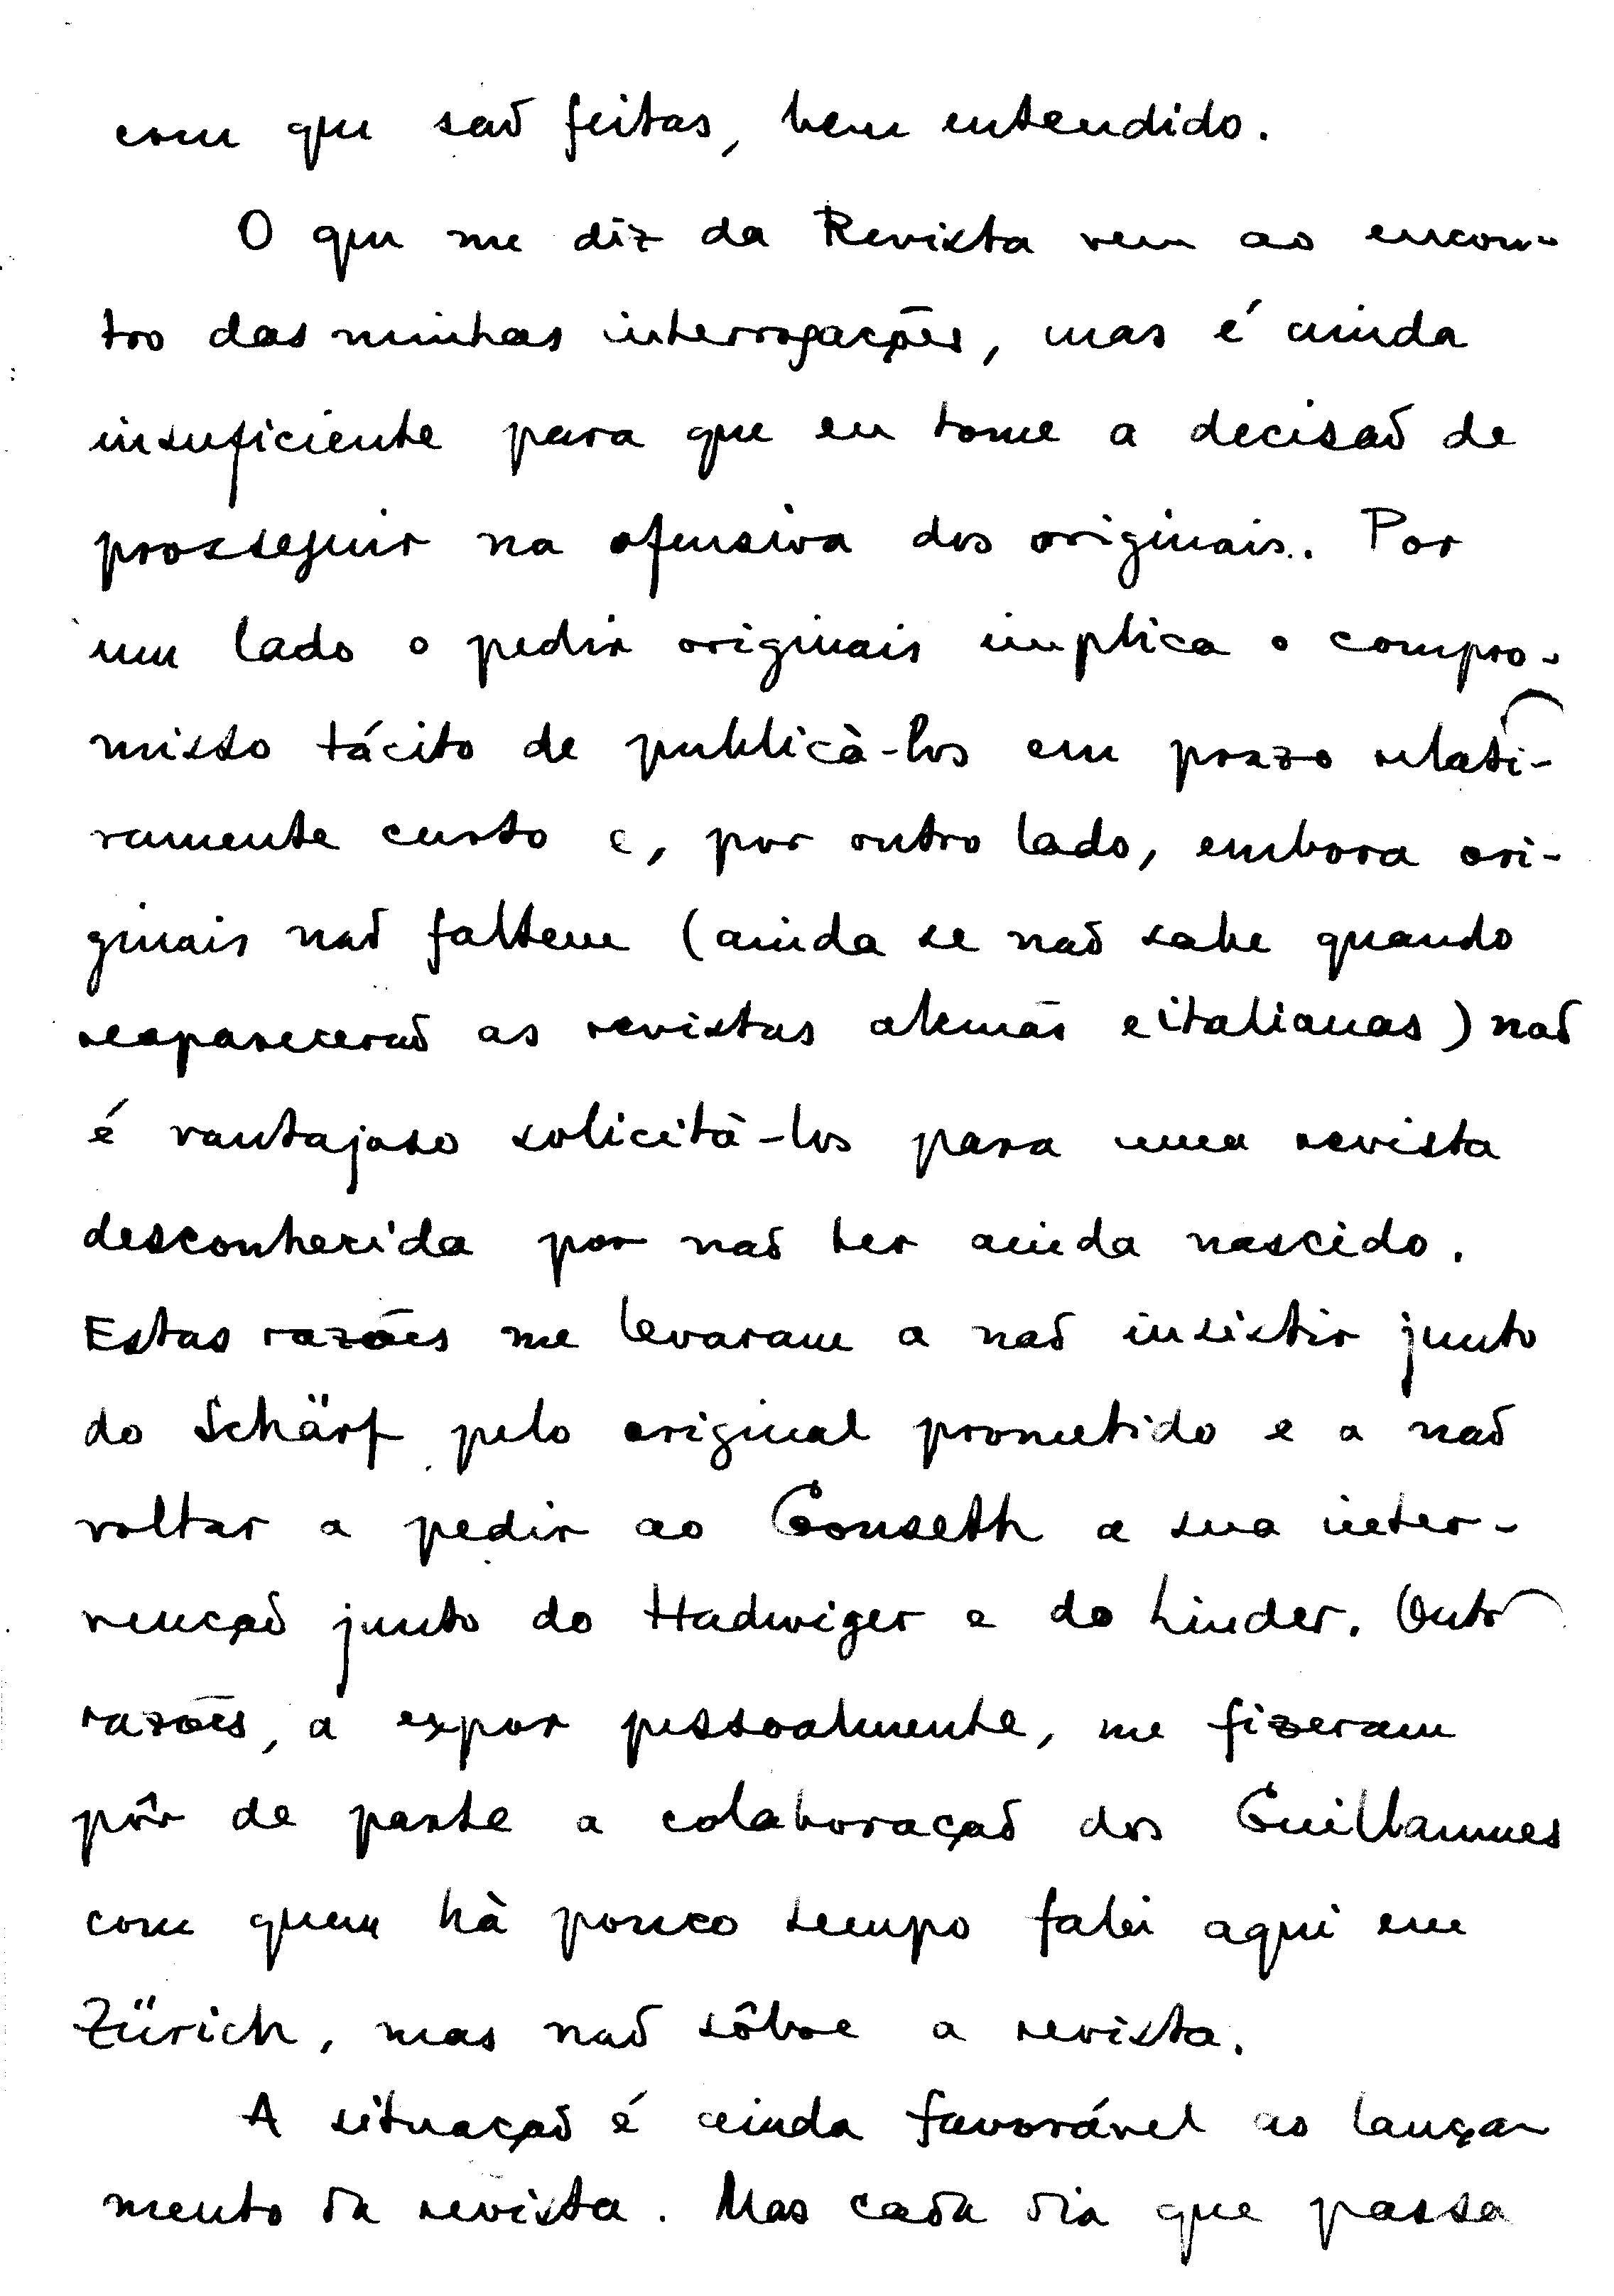 com que são feitas, bem entendido.
O que me diz da Revista vem ao encon-
tro das minhas interrogações, mas é ainda
insuficiente para que eu tome a decisão de
prosseguir na ofensiva dos originais. Por
um lado o pedir originais implica o compro-
misso tácito de publicà-los em prazo relati-
vamente curto e, por outro lado, embora ori-
ginais não faltem (ainda se não sabe quando
reaparecerão as revistas alemãs e italianas) não
é vantajoso solicità-los para uma revista
desconhecida por não ter ainda nascido.
Estas razões me levaram a não insistir junto
do Schärf pelo original prometido e a não
voltar a pedir ao Gonseth a sua inter-
venção junto do Hadwiger e do Linder. Outr
razões, a expor pessoalmente, me fizeram
pôr de parte a colaboração dos Guillaumes
com quem hà pouco tempo falei aqui em
Zürich, mas não sôbre a revista.
A situação é ainda favorável ao lança-
mento da revista. Mas cada dia que passa